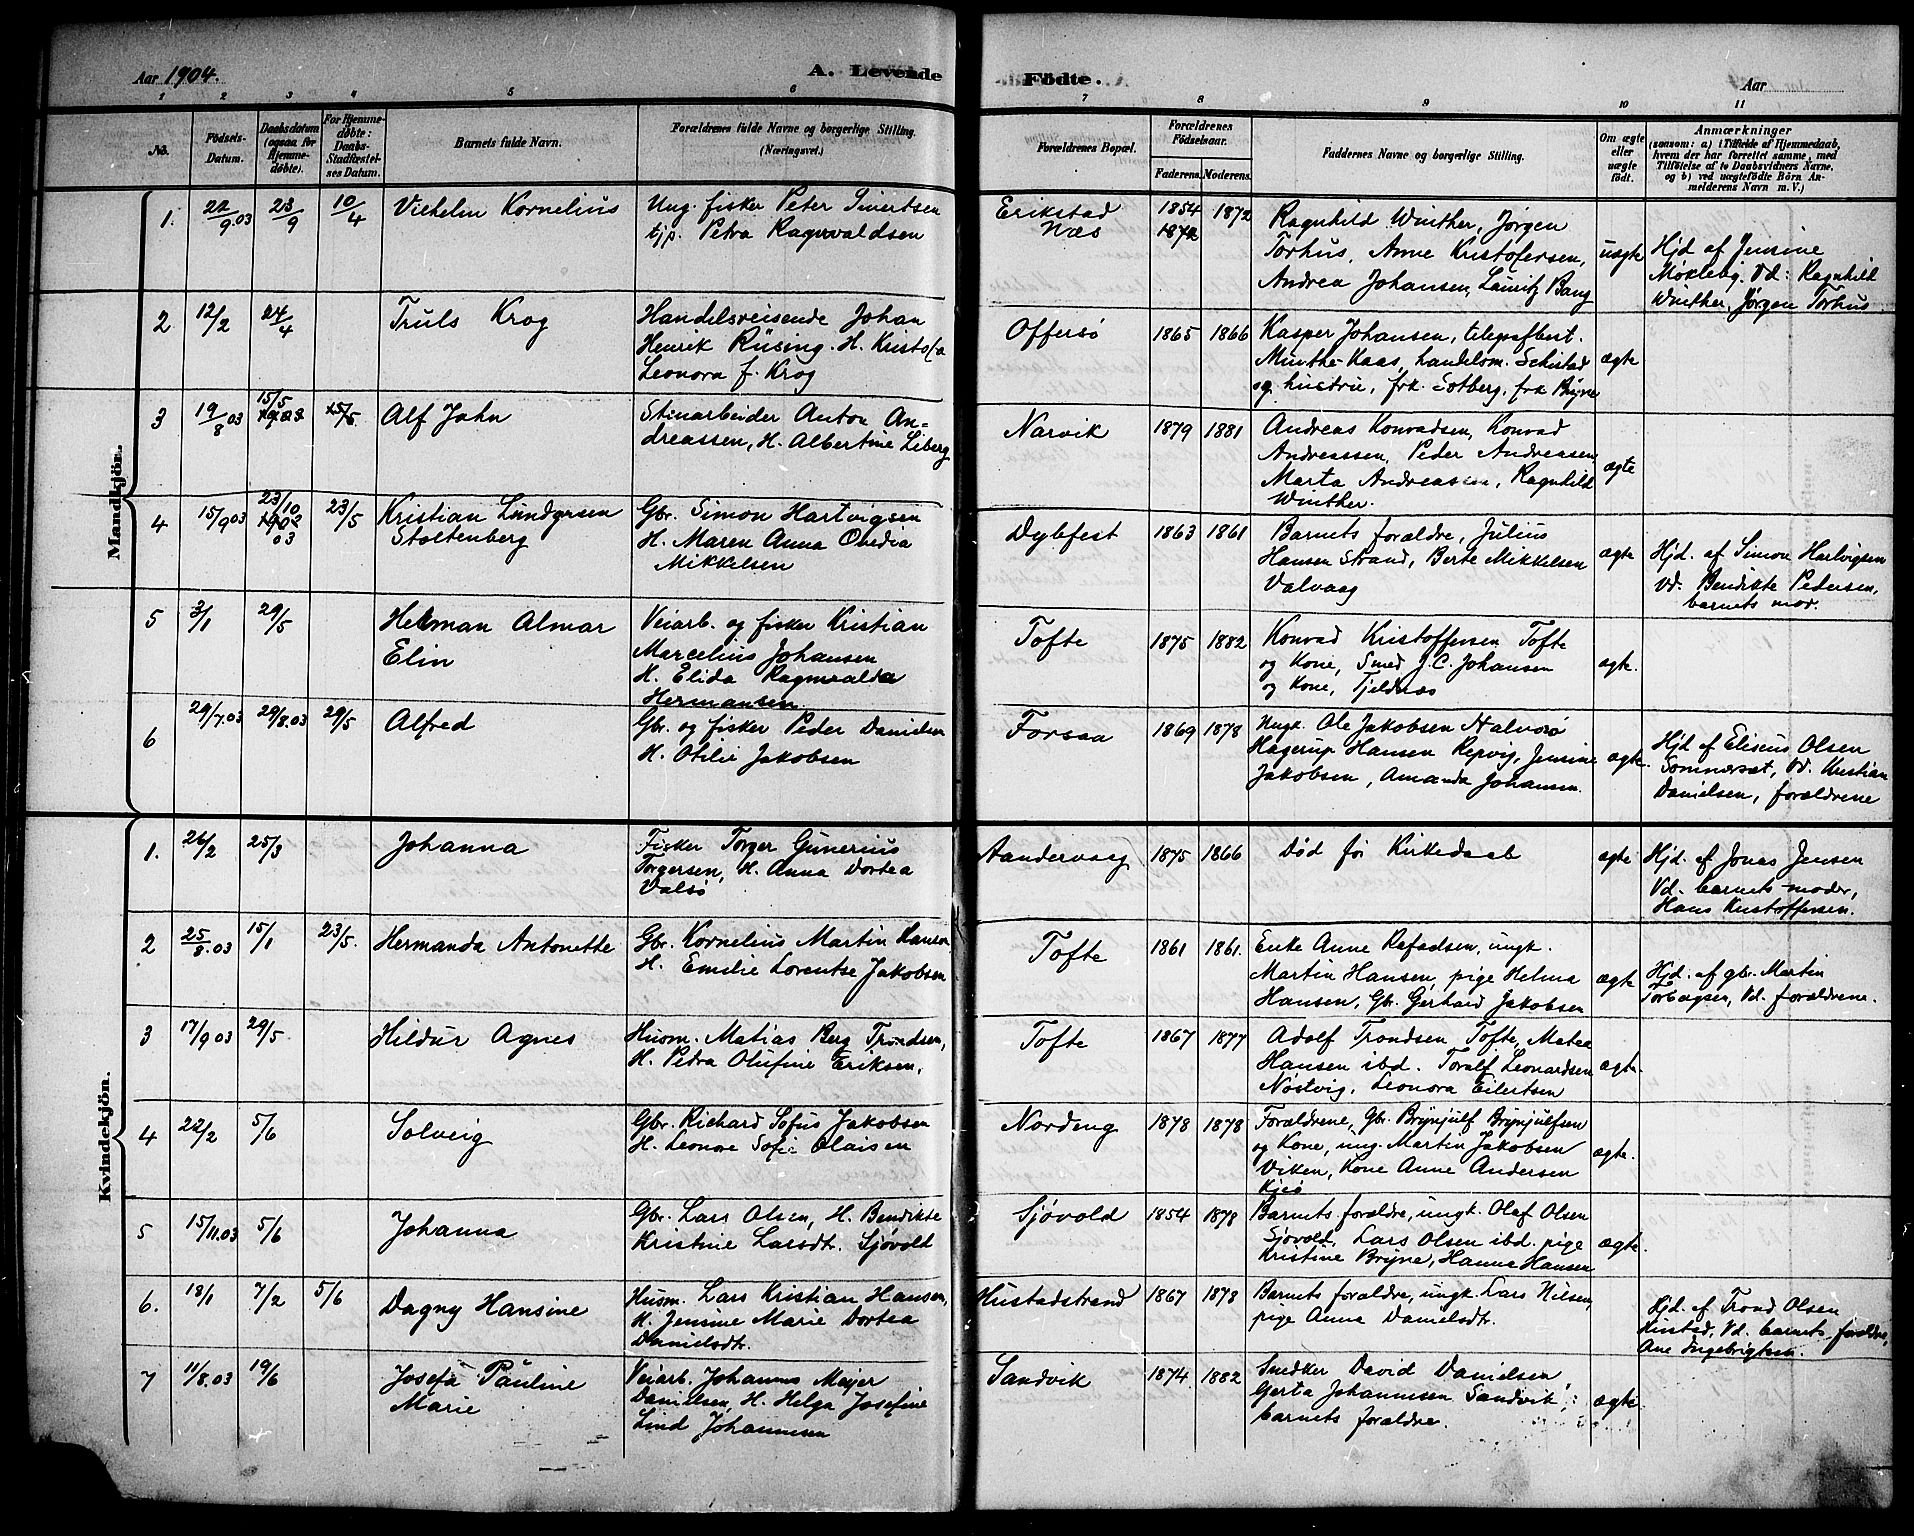 Aar 1904.
A. Levende Födte.
Aar
1 2 3 4 5 6 7 8 9 10 11
No.
Födsels-
Datum.
Daabsdatum
(ogsaa for
Hjemme-
döbte).
For Hjemme-
döbte:
Daabs-
Stadfæstel-
ses Datum.
Barnets fulde Navn.
Forældrenes fulde Navne og borgerlige Stilling.
(Næringsvei.)
Forældrenes Bopæl.
Forældrenes
Födselsaar.
Faderens. Moderens.
Faddernes Navne og borgerlige Stilling.
Om ægte
eller
uægte
födt.
Anmærkninger
(saasom: a) i Tilfælde af Hjemmedaab,
hvem der har forrettet samme, med
Tilföielse af to Daabsvidners Navne,
og b) ved uægtefödte Börn An-
melderens Navn m. V.)
Mandkjön.
1.
22/9.03
23/9
10/4
Vilhelm Kornelius
Ung. fisker Peter Sivertsen
tjp. Petra Ragnvaldsen
Erikstad
Næs
1854
1872
1872
Ragnhild Winther, Jørgen
Torhus, Anne Kristofersen,
Andrea Johansen, Lauritz Bang
uægte
Hjd af Jensine
Møklebg. Vd: Ragnhild
Winther, Jørgen Torhus
2
12/2
24/4
Truls Krog
Handelsreisende Johan
Henrik Rüsing. H.
Leonora f. Krog
Offersø
1865
1866
Kasper Johansen, telegrafbest.
Minthe-Kaas, handelsm. Schistad
og hustru, frk. Sotberg, frk Bryne
ægte
3
19/8 03
15/5
15/5
Alf John
Stenarbeider Anton An-
dreassen, H. Albertine Liberg
Narvik
1879
1881
Andreas Konradsen, Konrad
Andreassen, Peder Andreasen
Marta Andreassen, Ragnhild
Winther.
ægte
4
15/9 03
23/10
03
23/5
Kristian Lundgersen
Stoltenberg
Gbr. Simon Hartvigsen
H. Maren Anna Ovedia
Mikkelsen
Dybfest
1863
1861
Barnets forældre, Julius
Hansen Strand, Berte Mikkelsen
Valvaag
ægte
Hjd. af Simon Hartvigsen
Vd. Bendikte Pedersen,
barnets mor.
5
3/1
29/5
Herman Almar
Elin
Veiarb. og fisker Kristian
Marcelius Johansen
H. Elida Ragnvalda
Hermansen
Tofte
1875
1882
Konrad Kristoffersen Tofte
og Kone, Smed J. C. Johansen
og Kone, Tjeldnæs
ægte.
6
29/7.03
29/8.03
29/5
Alfred
Gbr. og fisker Peder Danielsen
H. Otilie Jakobsen
Forsaa
1869
1878
Ungk. Ole Jakobsen Halvarø
Hagerup Hansen Repvig, Jensine
Jakobsen, Amanda Johansen.
ægte.
Hjd. af Eliseus Olsen
Sommerset, Vd. Kristian
Danielsen, forældrene
Kvindekjön.
1.
26/2
25/3
Johanna
Fisker Torger Gunerius
Torgersen, H. Anna Dortea
Valsø
Aandervaag
1875
1866
Død før Kirkedaab
ægte
Hjd. af Jonas Jensen
Vd. barnets moder,
Hans Kristoffersen.
2
25/8.03
15/1
23/5.
Hermanda Antonette
Gbr. Kornelius Martin Hansen
H. Emilie Lorentse Jakobsen
Tofte
1861
1861.
Enke Anne Rafadsen, ungk.
Martin Hansen, pige Helma
Hansen, Gbr. Gerhard Jakobsen
ægte
Hjd. af gbr. Martin
Torbergsen, Vd. forældrene.
3
17/9 03
29/5
Hildur Agnes
Husm. Matias Berg Trondsen,
H. Petra Olufine Eriksen.
Tofte
1867
1877
Adolf Trondsen Tofte, Matea
Hansen ibd. Toralf Leonardsen
Nøstvig, Leonora Eilertsen
ægte.
4
22/2
5/6
Solveig
Gbr. Richard Sofus Jakobsen
H. Leonore Sofie Olaisen
Nordeng
1878
1878
Forældrene, Gbr. Brynjulf Brynjulfsen
og Kone, ung. Martin Jakobsen
Viken, Kone Anne Andersen
Kjeø
ægte.
5
15/11.03
5/6
Johanna
Gbr. Lars Olsen, H. Bendikte
Kristine Larsdt. Sjøvold
Sjøvold
1854
1878
Barnets forældre, ungk. Olaf Olsen
Sjøvold, Lars Olsen ibd. pige
Kristine Bryne, Hanna Hansen
ægte.
6.
18/1
7/2
5/6
Dagny Hansine
Husm. Lars Kristian Hansen,
H. Jensine Marie Dortea
Danielsdt.
Hustadstrand
1867
1878
Barnets forældre, ungk. Lars Nilsen,
pige Anna Danielsdt.
Hjd. af Trond Olsen
Hustad, Vd. barnets forældre,
Ane Ingebrigtsen.
7
11/8.03
19/6
Josefa Pauline
Marie
Veiarb. Johannes Meyer
Danielsen, H. Helga Josefine
Lind Johannesen
Sandvik
1874
1882
Snedker David Danielsen
Gerta Johannesen Sandvik,
barnets forældre.
ægte.